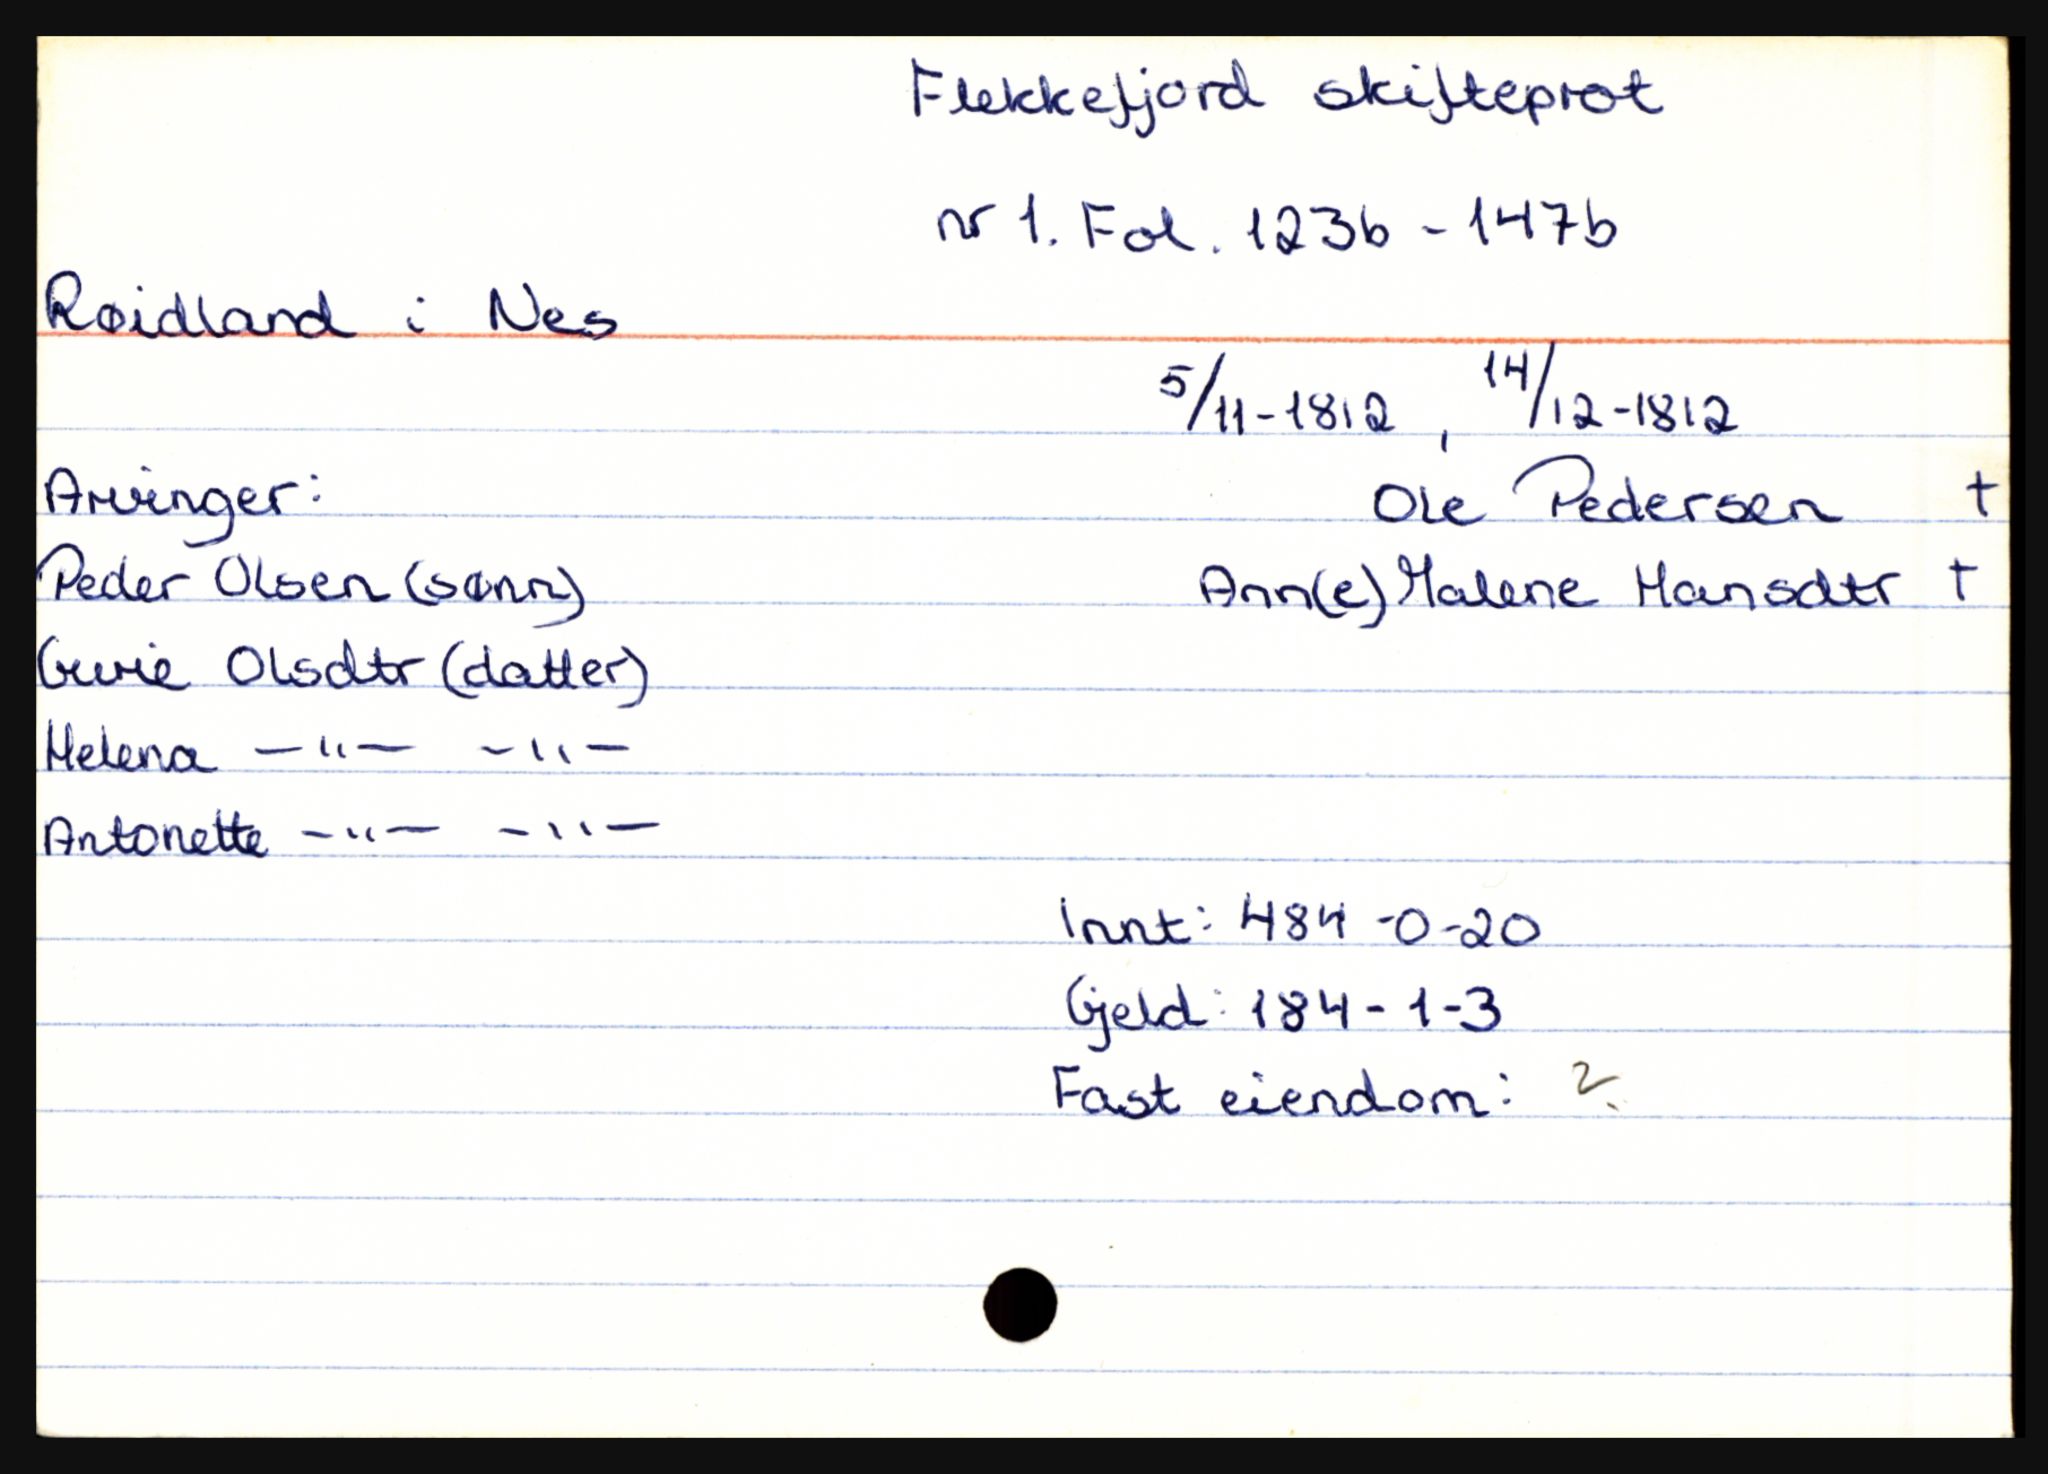 Flekkefjord skifteprot
nr 1. Fol. 123b - 147b
Røidland i Nes
5/11-1812, 14/12-1812
Arvinger:
Ole Pedersen †
Peder Olsen (sønn)
Ann(e) Malene Hansdtr †
Gurie Olsdtr (datter)
Helena -"- -"-
Antonette -"- -"-
Innt: 484-0-20
Gjeld: 184-1-3
Fast eiendom: ?